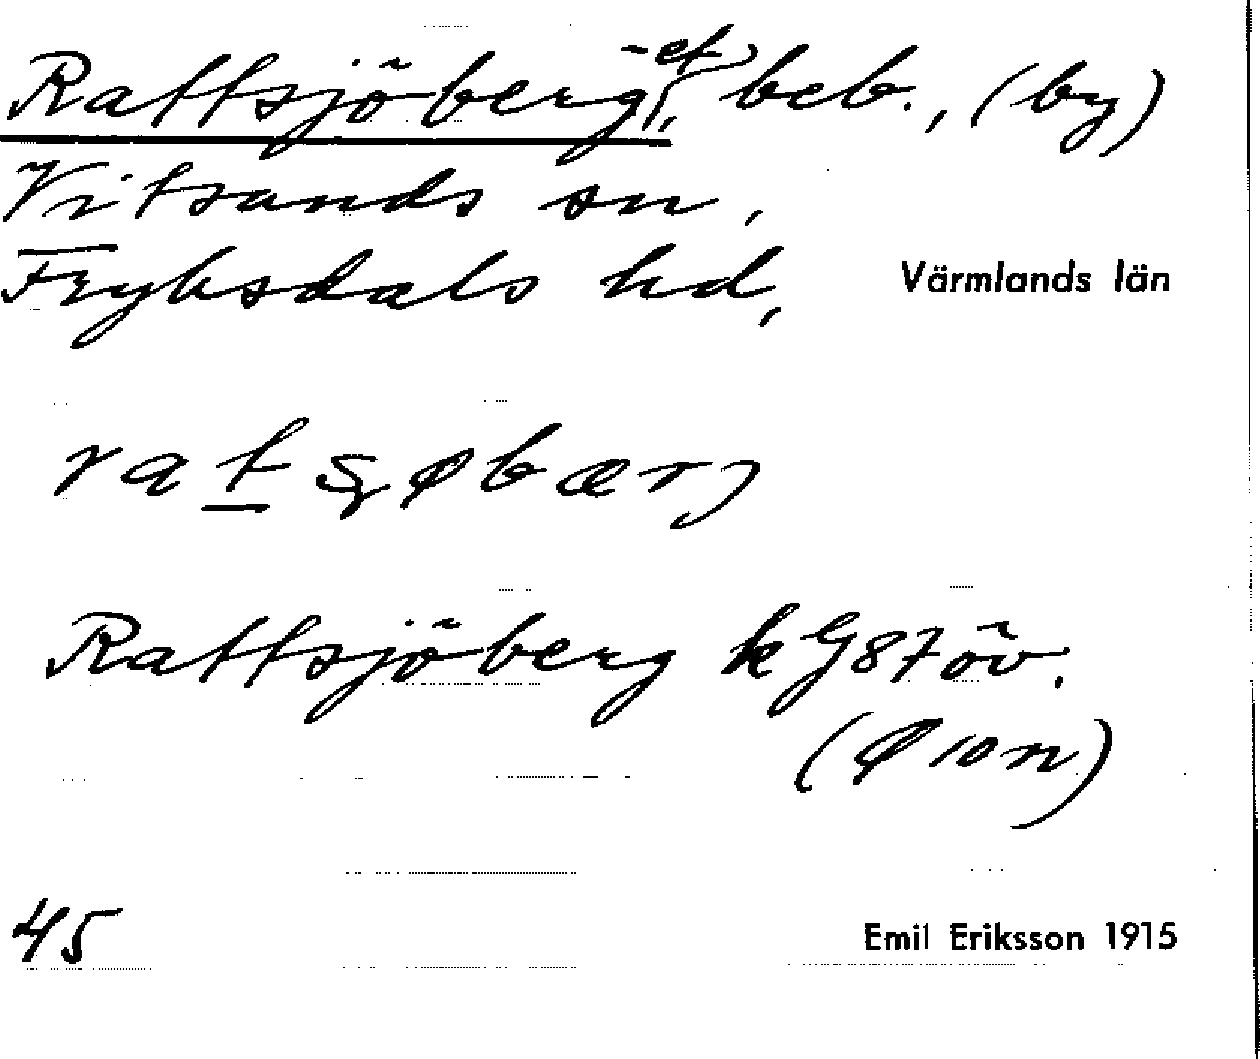 Rattsjöberg, -et, beb., (by)
Vitsands sn,
Fryksdals hd, Värmlands län
Rattsjöberg k G 87 öv.
(Ø 10 n)
45 Emil Eriksson 1915